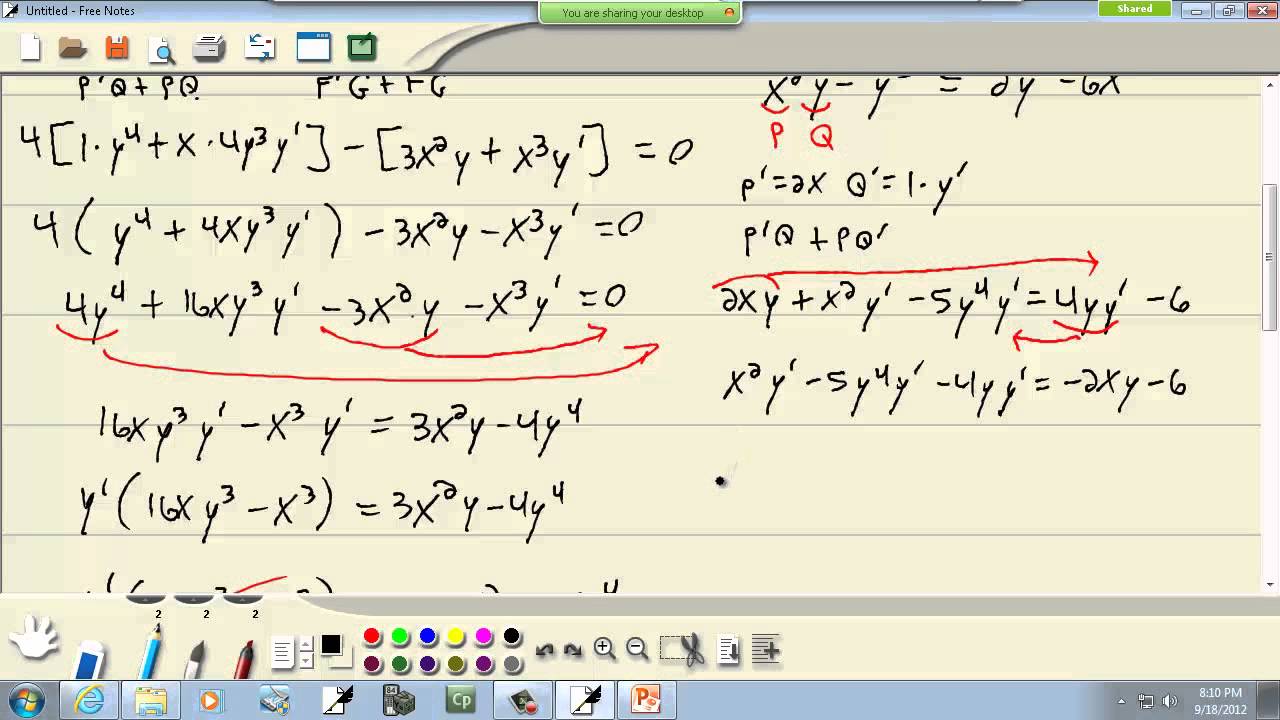 Untitled - Free Notes
You are sharing your desktop
Shared
P'Q + PQ
F'G + FG
4[1·y⁴ + x·4y³y'] - [3x²y + x³y'] = 0
4(y⁴ + 4xy³y') - 3x²y - x³y' = 0
4y⁴ + 16xy³y' - 3x²·y - x³y' = 0
16xy³y' - x³y' = 3x²y - 4y⁴
y'(16xy³ - x³) = 3x²y - 4y⁴
x²y - y = 2y - 6x
P Q
P' = 2x Q' = 1·y'
P'Q + PQ'
2xy + x²y' - 5y⁴y' = 4yy' - 6
x²y' - 5y⁴y' - 4yy' = -2xy - 6
2 2 2
Cp
8:10 PM
9/18/2012